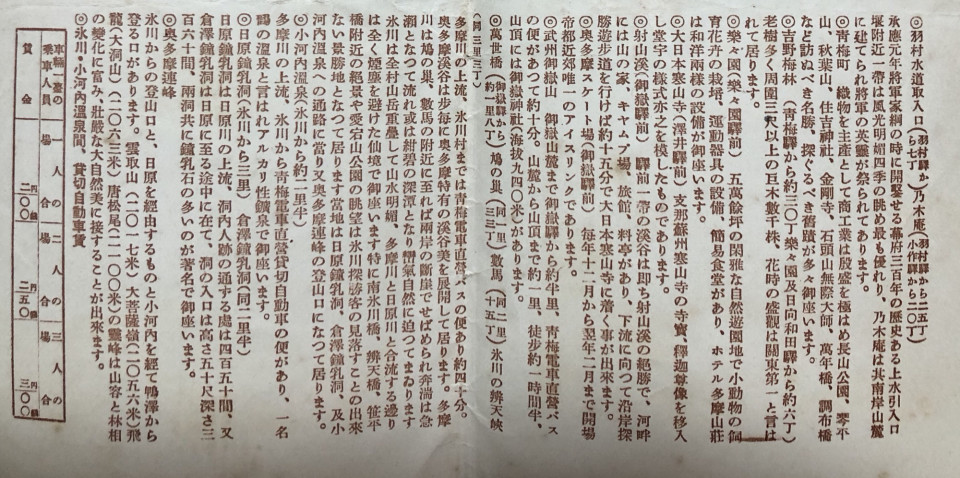 ◎羽村小水道取入口(羽村驛から七丁)乃木庵(羽村驛から二五丁小作驛から二〇丁)
承應元年將軍家綱の時に開鑿せる幕府三百年の歷史ある上水引入口
堰附近一帶は風光明媚四季の眺め最も優れ、乃木庵は其南岸山麓
に建てられ將軍の英靈が祭られてあります。
◎青梅町 織物を主產として商工業に殷盛を極はめ長山公園、琴平
山、秋葉山、住吉神社、金剛寺、石頭山無際大師、萬年橋、調布橋
など訪ぬべき名勝、探ぐるべき舊蹟が多々御座います。
◎吉野梅林 (青梅驛から約三〇丁樂々園及日向和田驛から約六丁)
老樹多く周圍三尺以上の巨木數千株、花時の盛觀は關東第一と言は
れて居ります。
◎樂々園(樂々園驛前) 五萬餘坪の閑雅な自然遊園地で小動物の飼
育花卉の栽培、運動器具の設備、簡易食堂があり、ホテル多摩山莊
は和洋兩樣の設備が御座います。
◎大日本寒山寺(澤井驛前) 支那蘇州寒山寺の寺寶、釋迦尊像を移入
し堂宇の樣式亦之を模したものであります。
◎射山溪(御嶽驛前) 驛前一帶の溪谷は即ち射山溪の絕勝で、河畔
には山の家、キヤムプ場、旅館、料亭があり、下流に向つて沿岸探
勝遊步道を行けば約十五分で大日本寒山寺に着く事が出來ます。
◎奧多摩スケート場(御嶽驛前) 每年十二月から翌年二月まで開場
帝都近郊唯一のアイスリンクであります。
◎武州御嶽山 御嶽山麓まで御嶽驛から約半里、青梅電車直營バス
の便があつて約十分。山麓から山頂まで約半里、徒步約一時間半、
山頂には御嶽神社(海拔九四〇米)があります。
◎萬世橋(御嶽驛から約一里八丁)鳩の巢(同一里三三丁)數馬(同二里十五丁)氷川の辨天峽
(同三里三丁)
多摩川の上流、氷川村までは青梅電車直營バスの便あり約四十分。
奧多摩溪谷は步每に奧多摩特有の溪谷美を展開して居ります。多摩
川は鳩の巢、數馬の附近に至れば兩岸の斷崖でせばめられ奔湍は急
瀨となつて流れ或は紺碧の深潭となり幽氣自然に迫つてまゐります
氷川は全村山岳重疊して山水明媚、多摩川と日原川と合流する邊り
は全く煙塵を避けた仙境で御座います特に南氷川橋、辨天橋、笹平
橋附近の絕景や愛宕山公園の眺望は氷川探勝客の見落すことの出來
ない景勝地となつて居ります當地は日原鐘乳洞、倉澤鐘乳洞、及小
河內溫泉への通路に當り又奧多摩連峰の登山口になつて居ります。
◎小河內溫泉(氷川から約二里半)
多摩川の上流、氷川から青梅電車直營貸切自動車の便があり、一名
鶴の溫泉と言はれアルカリ性鑛泉で御座います。
◎日原鐘乳洞(氷川から三里) 倉澤鐘乳洞(同二里半)
日原鐘乳洞は日原川の上流、洞內人跡の通ずる處は四百五十間、又
倉澤鐘乳洞は日原に至る途中に在て、洞の入口は高さ五十尺深さ三
百六十間、兩洞共に鐘乳石の多いのが著名で御座います。
◎奧多摩連峰
氷川からの登山口と、日原を經由するものと小河內を經て鴨澤から
登るコロがあります。雲取山(二〇一七米)大菩薩嶺(二〇五六米)飛
龍(大洞山)(二〇六三米)唐松尾(二一〇〇米)の靈峰は山容と林相
の變化に富み、壯嚴な大自然美に接することが出來ます。
◎氷川・小河內溫泉間、貸切自動車賃
車輛一臺の乘車人員 一人の場合 二人の場合 三人の場合
賃金 二圓〇〇錢 二圓五〇錢 三圓〇〇錢